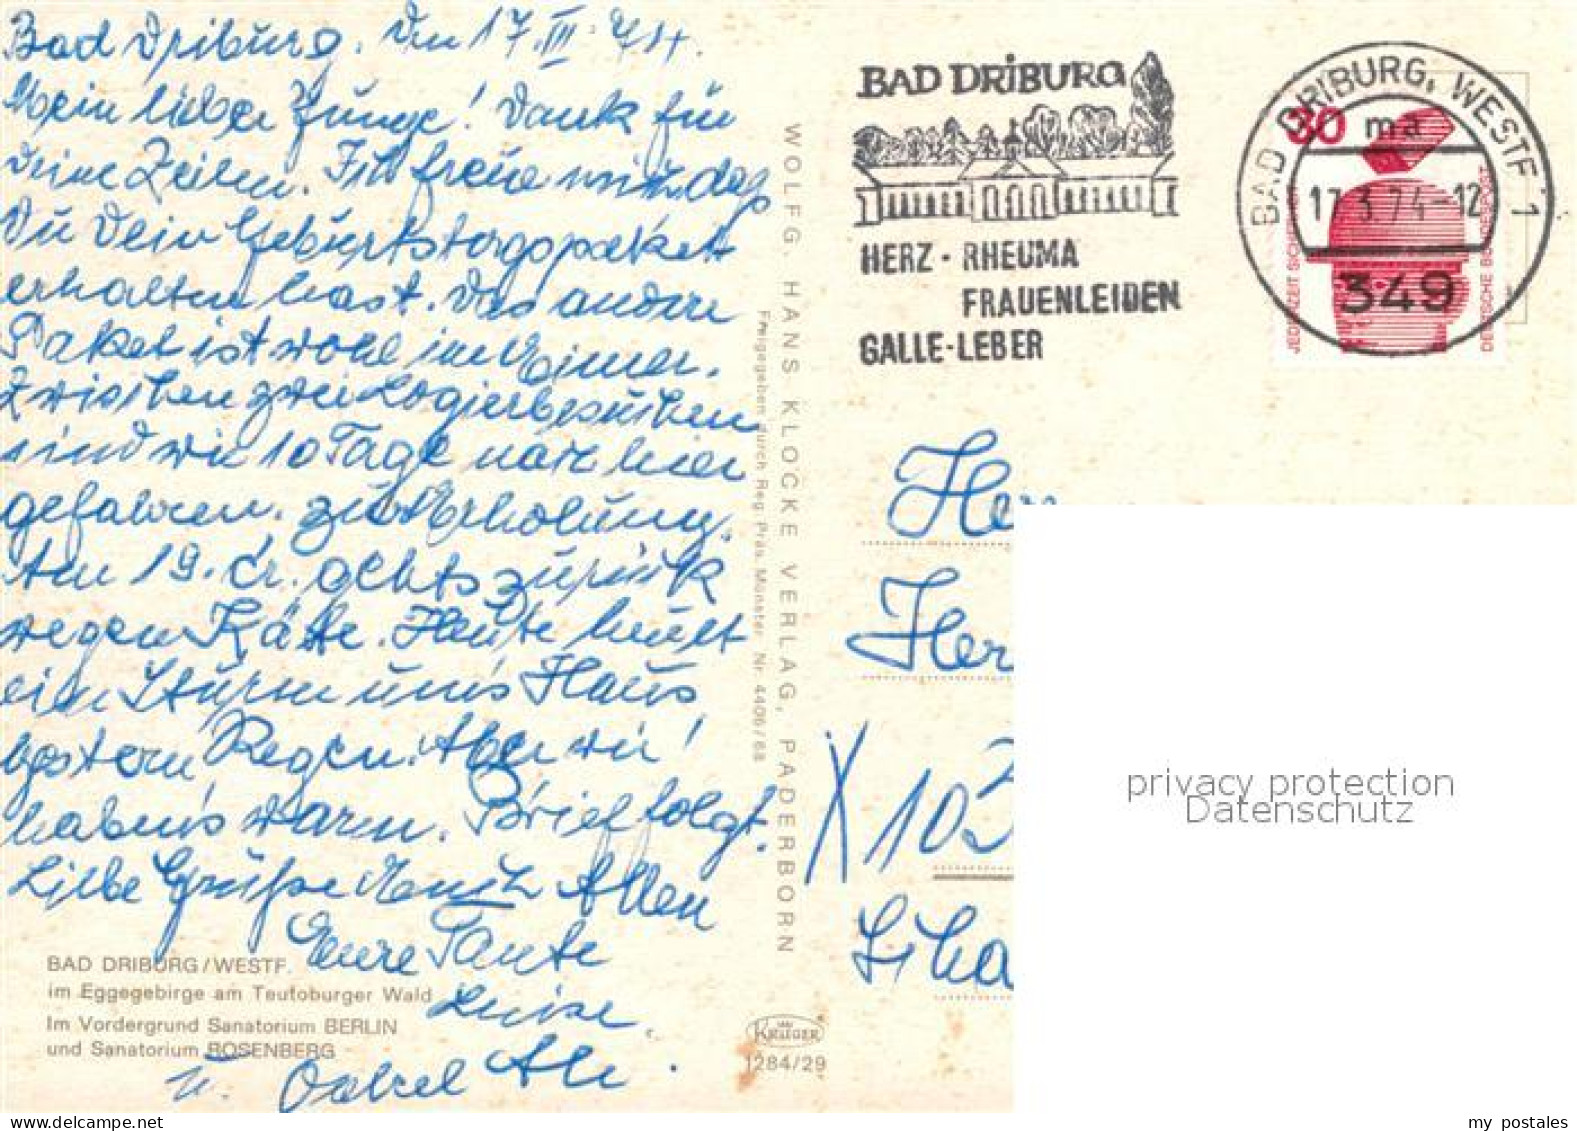 Bad Driburg. Den 17. III. 74.
Mein lieber Junge! Dank für
deine Zeilen. Ich freue mich, daß
Du Dein Geburtstagspaket
erhalten hast. Das andere
Paket ist wohl im Eimer.
Zwischen zwei Logierbesuchen
sind wir 10 Tage nach hier
gefahren. zur Erholung.
Am 19. cr. gehts zurück
wegen Käte. Heute heult
ein Sturm um's Haus
gestern Regen. Aber wir
haben's warm. Brief folgt.
Liebe Grüße Euch Allen
Eure Tante
Luise.
u. Onkel
BAD DRIBURG/WESTF.
im Eggegebirge am Teutoburger Wald
Im Vordergrund Sanatorium BERLIN
und Sanatorium ROSENBERG
WOLFG HANS KLOCKE VERLAG, PADERBORN
Freigegeben durch Reg. Präs. Münster Nr. 4406/68
KRÜGER
1284/29
BAD DRIBURG
HERZ - RHEUMA
FRAUENLEIDEN
GALLE-LEBER
BAD DRIBURG, WESTF 1
30
ma
17.3.74-12
349
JEDERZEIT SICHERHEIT
DEUTSCHE BUNDESPOST
Her
Her
X 10
privacy protection
Datenschutz
my postales